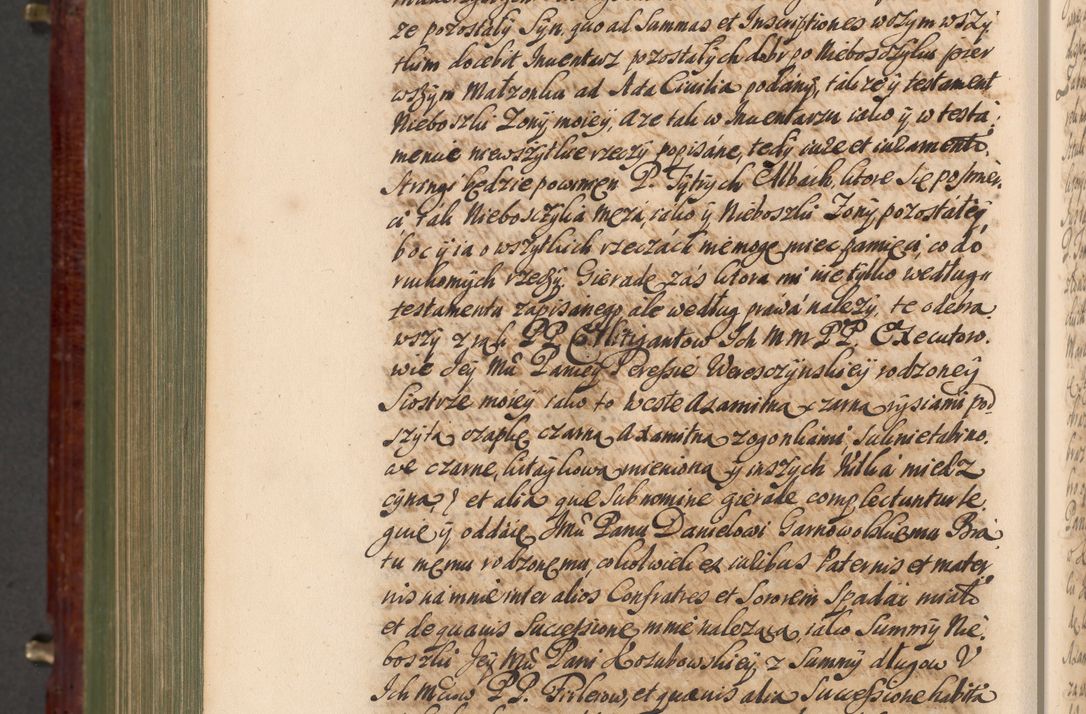 że pozostały Syn, quo ad Summas et Inscriptiones wszym wszy
tkim docebit Inuentarz pozostałych dobr po Nieboszczyku pier
wszym Małzonku ad Acta Ciuilia podany, także y testament
Nieboszki Zony moiey, A ze tak w Inuentarzu iako y w testa
mencie nie wszytkie rzeczy popisane, tedy iuże et iuramento
Stringi będzie powinien P. Tytrych Albach, ktore się po śmier
ci tak Nieboszczyka męża, iako y Nieboszki Zony pozostałey
bo y ia o wszytkich rzeczach nie moge miec pamięci, co do
ruchomych rzeczy. Gierade zas ktora mi nie tylko według
testamentu zapisanego ale według prawa należy, te odebra
wszy z rąk PP. Mitigantow Ich MM PP. Executoro
wie Jey Mci Paniey Teressie Weresczynskiey rodzoney
Siostrze moiey iako to weste Axamitna czarna rysiami pod
szyta czapkę czarna Axamitna z ogonkami, Suknie tabino
we czarne, kitaykowa mieniona y inszych kilka miedz
cyna, et alia quæ sub nomine gierade complectuntur le
guie y oddaię Jmci Panu Danielowi Garnowolskiemu Bra
tu memu rodzonemu, cokolwiek ex iuribus Paternis et mater
nis na mnie inter alios Confratres et Sororem Spadać miało
et de quauis Successione mnie należąca iako Summy Nie
boszki Jey Mci Pani Kozubowskiey z Summy długow V
Ich Mciow PP. Firlerow, et quauis alia Successione habita